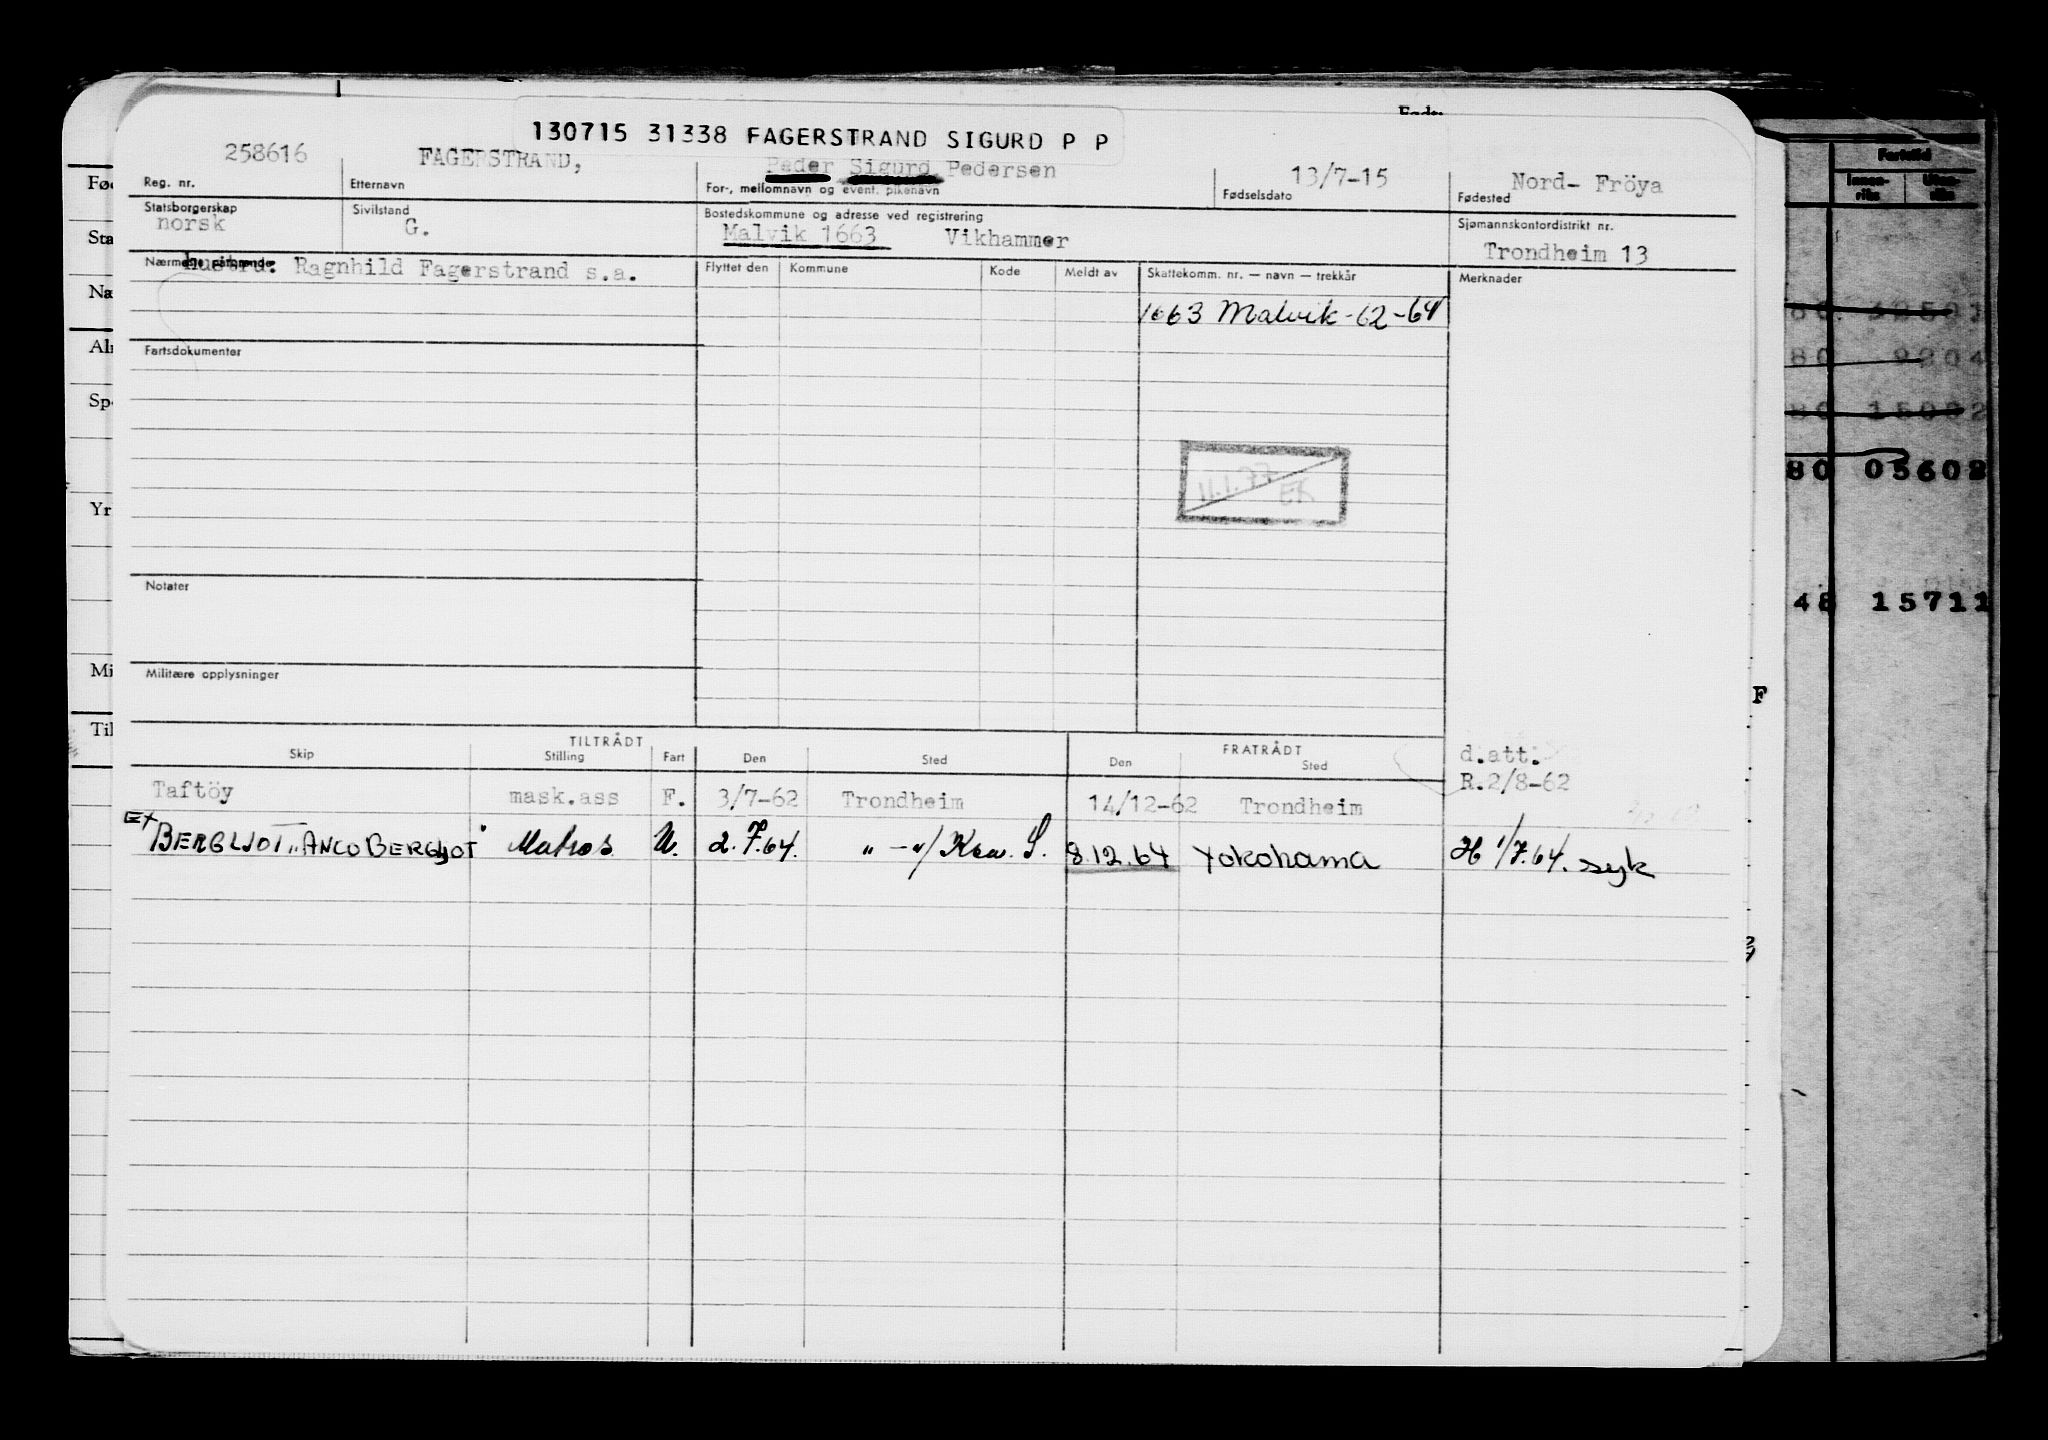 Født:
130715 31338 FAGERSTRAND SIGURD P P
258616 FAGERSTRAND, Peder Sigurd Pedersen 13/7-15 Nord- Fröya
Reg. nr. Etternavn For-, mellomnavn og event. pikenavn Fødselsdato Fødested
Statsborgerskap Sivilstand Bostedskommune og adresse ved registrering Sjømannskontordistrikt nr.
norsk G. Malvik 1663 Vikhammer Trondheim 13
Nærmeste pårørende
hustru: Ragnhild Fagerstrand s.a.
Flyttet den Kommune Kode Meldt av Skattekomm. nr. — navn — trekkår Merknader
1663 Malvik-62-64
Fartsdokumenter
11.1.77 EK
Notater
Militære opplysninger
TILTRÅDT FRATRÅDT
Skip Stilling Fart Den Sted Den Sted
d.att.
R.2/8-62
Taftöy mask.ass F. 3/7-62 Trondheim 14/12-62 Trondheim
EX
BERGLJOT "ANCO BERGLJOT" Matros U. 2.7.64. " - "/ S. 8.12.64 Yokohama H 1/7.64. syk
Fartstid
Innen-
riks
Uten-
riks
80 9204
80 15032
80 05608
48 15711
F
Fød
Sta
Næ
Alm
Spe
Yr
Mi
Til